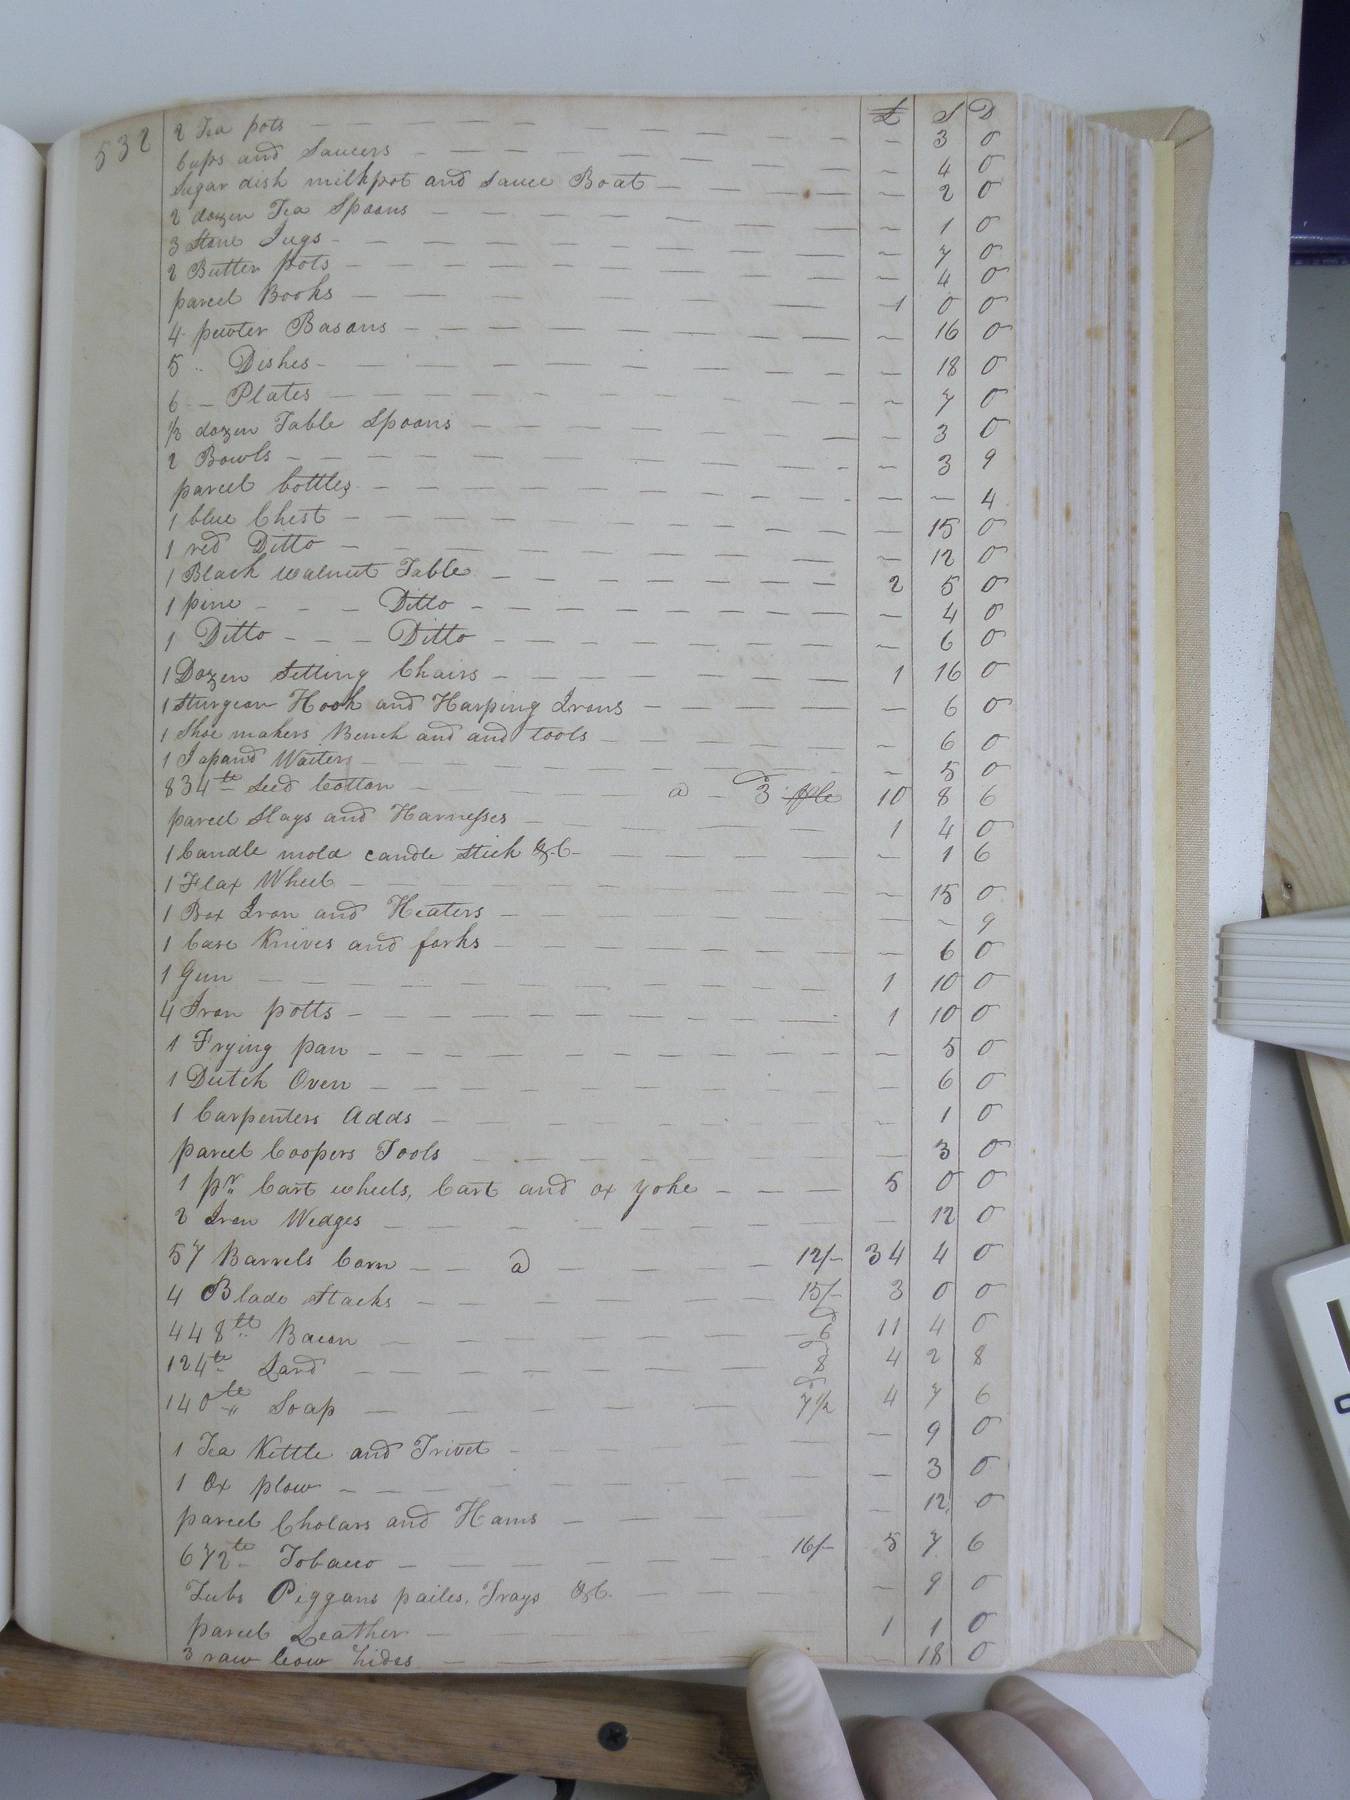 532
£ S D
2 Tea pots — 3 0
Cups and Saucers — 4 0
Sugar dish milkpot and sauce Boat — 2 0
2 dozen Tea Spoons — 1 0
3 Stone Jugs — 7 0
2 Butter pots — 4 0
parcel Books 1 0 0
4 pewter Basons — 16 0
5 " Dishes — 18 0
6 — Plates — 7 0
1/2 dozen Table Spoons — 3 0
2 Bowls — 3 9
parcel bottles — — 4
1 blue Chest — 15 0
1 red Ditto — 12 0
1 Black walnut Table 2 5 0
1 pine Ditto — 4 0
1 Ditto Ditto — 6 0
1 Dozen Setting Chairs 1 16 0
1 Sturgeon Hook and Harping Irons — 6 0
1 Shoe makers Bench and and tools — 6 0
1 Japand Waiter — 5 0
834lb Seed Cotton a 3d 10 8 6
parcel Slays and Harnesses 1 4 0
1 Candle mold candle stick &C — 1 6
1 Flax Wheel — 15 0
1 Box Iron and Heaters — — 9
1 Case Knives and forks — 6 0
1 Gun 1 10 0
4 Iron potts 1 10 0
1 Frying pan — 5 0
1 Dutch Oven — 6 0
1 Carpenters Adds — 1 0
parcel Coopers Tools — 3 0
1 pr Cart wheels, Cart and ox yoke 5 0 0
2 Iron Wedges — 12 0
57 Barrels Corn a 12/- 34 4 0
4 Blade Stacks 15/- 3 0 0
448lb Bacon 6d 11 4 0
124lb Lard 8d 4 2 8
140lb Soap 7 1/2d 4 7 6
1 Tea Kettle and Trivet — 9 0
1 Ox plow — 3 0
parcel Cholars and Hams — 12 0
672lb Tobacco 16/- 5 7 6
Tubs Piggans pailes, Trays &C — 9 0
parcel Leather 1 1 0
3 raw Cow hides — 18 0